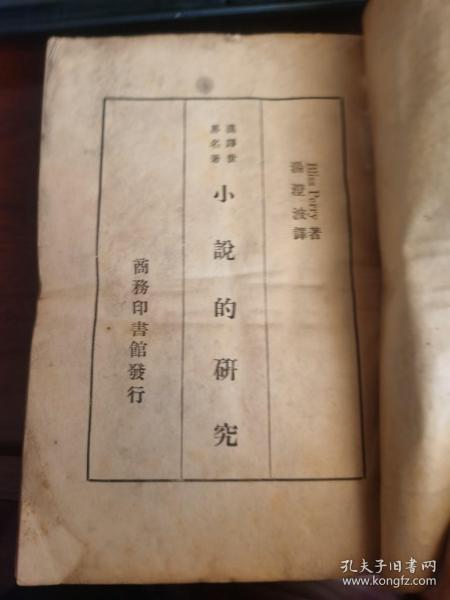 Bliss Perry 著
湯澄波 譯
漢譯世
界名著
小說的研究
商務印書館發行
孔夫子旧书网
www.kongfz.com